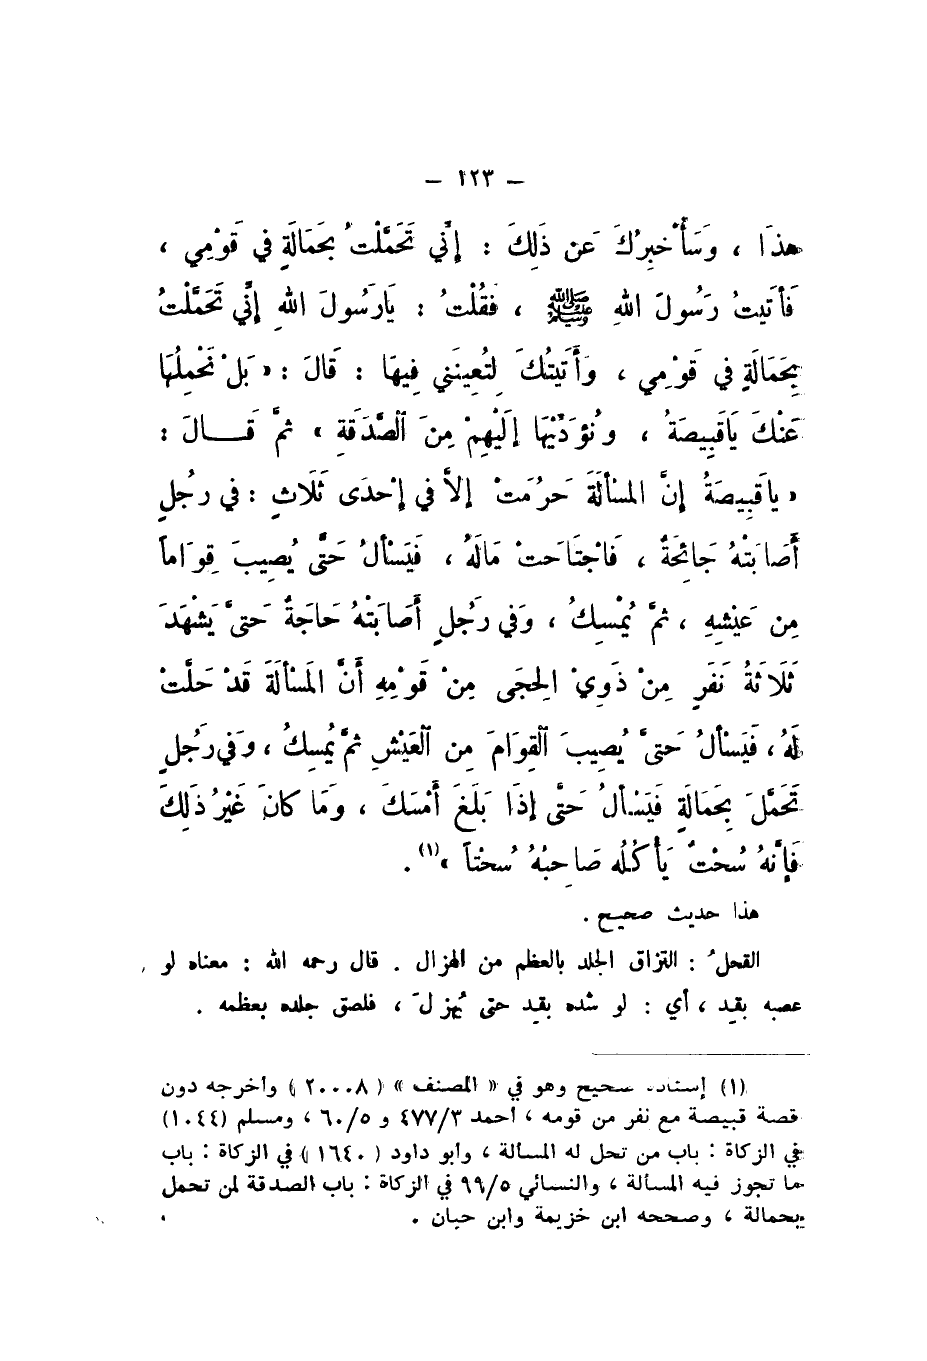 – ١٢٣ –
هذَا ، وَسَأُخبِرُكَ عَن ذَلِكَ : إِنِّي تَحَمَّلْتُ بِحَمَالَةٍ في قَوْمِي ،
فَأَتَيتُ رَسُولَ اللهِ ﷺ ، فَقُلْتُ : يَارَسُولَ اللهِ إِنِّي تَحَمَّلْتُ
بِحَمَالَةٍ في قَوْمِي ، وَأَتَيْتُكَ لِتُعِينَني فِيهَا : قَالَ : « بَلْ نَحْمِلُهَا
عَنْكَ يَاقَبِيصَةُ ، وَنُؤَدِّيْهَا إِلَيْهِمْ مِنَ الصَّدَقَةِ » ثُمَّ قَـــالَ :
« يَاقَبِيصَةُ إِنَّ المَسْأَلَةَ حَرُمَتْ إِلاَّ في إِحْدَى ثَلَاثٍ : في رَجُلٍ
أَصَابَتْهُ جَائِحَةٌ ، فَاجْتَاحَتْ مَالَهُ ، فَيَسْأَلُ حَتَّى يُصِيبَ قِوَاماً
مِن عَيْشِهِ ، ثُمَّ يُمْسِكُ ، وَفي رَجُلٍ أَصَابَتْهُ حَاجَةٌ حَتىَّ يَشْهَدَ
ثَلَاثَةُ نَفَرٍ مِنْ ذَوِيْ الحِجَى مِنْ قَوْمِهِ أَنَّ المَسْأَلَةَ قَدْ حَلَّتْ
لَهُ ، فَيَسْأَلُ حَتىَّ يُصِيبَ القِوَامَ مِن العَيْشِ ثُمَّ يُمسِكُ ، وَفي رَجُلٍ
تَحَمَّلَ بِحَمَالَةٍ فَيَسْأَلُ حَتَّى إِذَا بَلَغَ أَمْسَكَ ، وَمَا كَانَ غَيْرُ ذَلِكَ
فَإِنَّهُ سُحْتٌ يَأْكُلُه صَاحِبُهُ سُحتاً » (١) .
هذا حديث صحيح .
القحلُ : التزاق الجلد بالعظم من الهزال . قال رحمه الله : معناه لو
عصبه بقِد ، أي : لو شده بقِد حتى يُهزلَ ، فلصق جلده بعظمه .
(١) إسناده صحيح وهو في « المصنف » ( ٢٠٠٠٨ ) وأخرجه دون
قصة قبيصة مع نفر من قومه ، أحمد ٤٧٧/٣ و ٦٠/٥ ، ومسلم (١٠٤٤)
في الزكاة : باب من تحل له المسألة ، وأبو داود ( ١٦٤٠ ) في الزكاة : باب
ما تجوز فيه المسألة ، والنسائي ٩٩/٥ في الزكاة : باب الصدقة لمن تحمل
بحمالة ، وصححه ابن خزيمة وابن حبان .